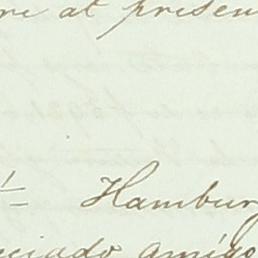 re at presen
Hambur
ciado amigo